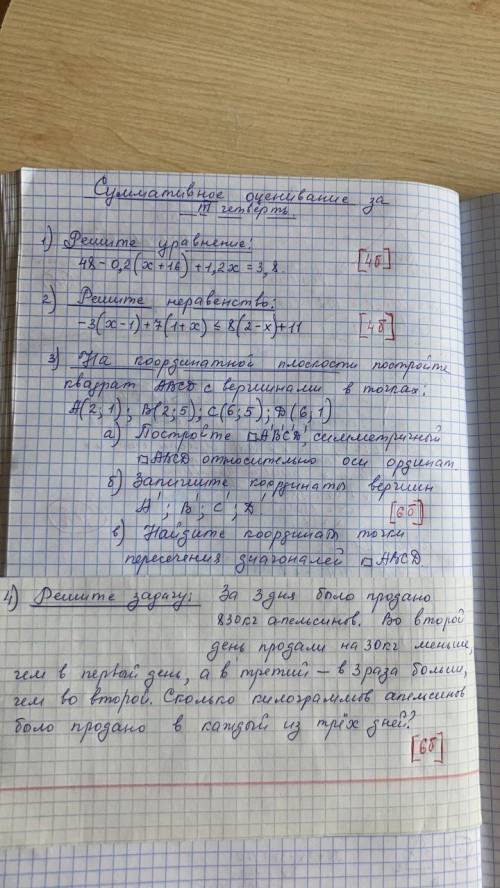 Суммативное оценивание за
III четверть.
1) Решите уравнение:
48 - 0,2(x+16) + 1,2x = 3,8 [4б]
2) Решите неравенство:
-3(x-1)+7(1+x) ≤ 8(2-x)+11 [4б]
3) На координатной плоскости постройте
квадрат ABCD с вершинами в точках:
A(2;1); B(2;5); C(6;5); D(6;1)
а) Постройте □A'B'C'D', симметричный
□ABCD относительно оси ординат
б) Запишите координаты вершин
A'; B'; C'; D' [6б]
в) Найдите координат точки
пересечения диагоналей □ABCD.
4) Решите задачу: За 3 дня было продано
830кг апельсинов. Во второй
день продали на 30кг меньше,
чем в первый день, а в третий – в 3 раза больше,
чем во второй. Сколько килограммов апельсинов
было продано в каждый из трёх дней?
[6б]